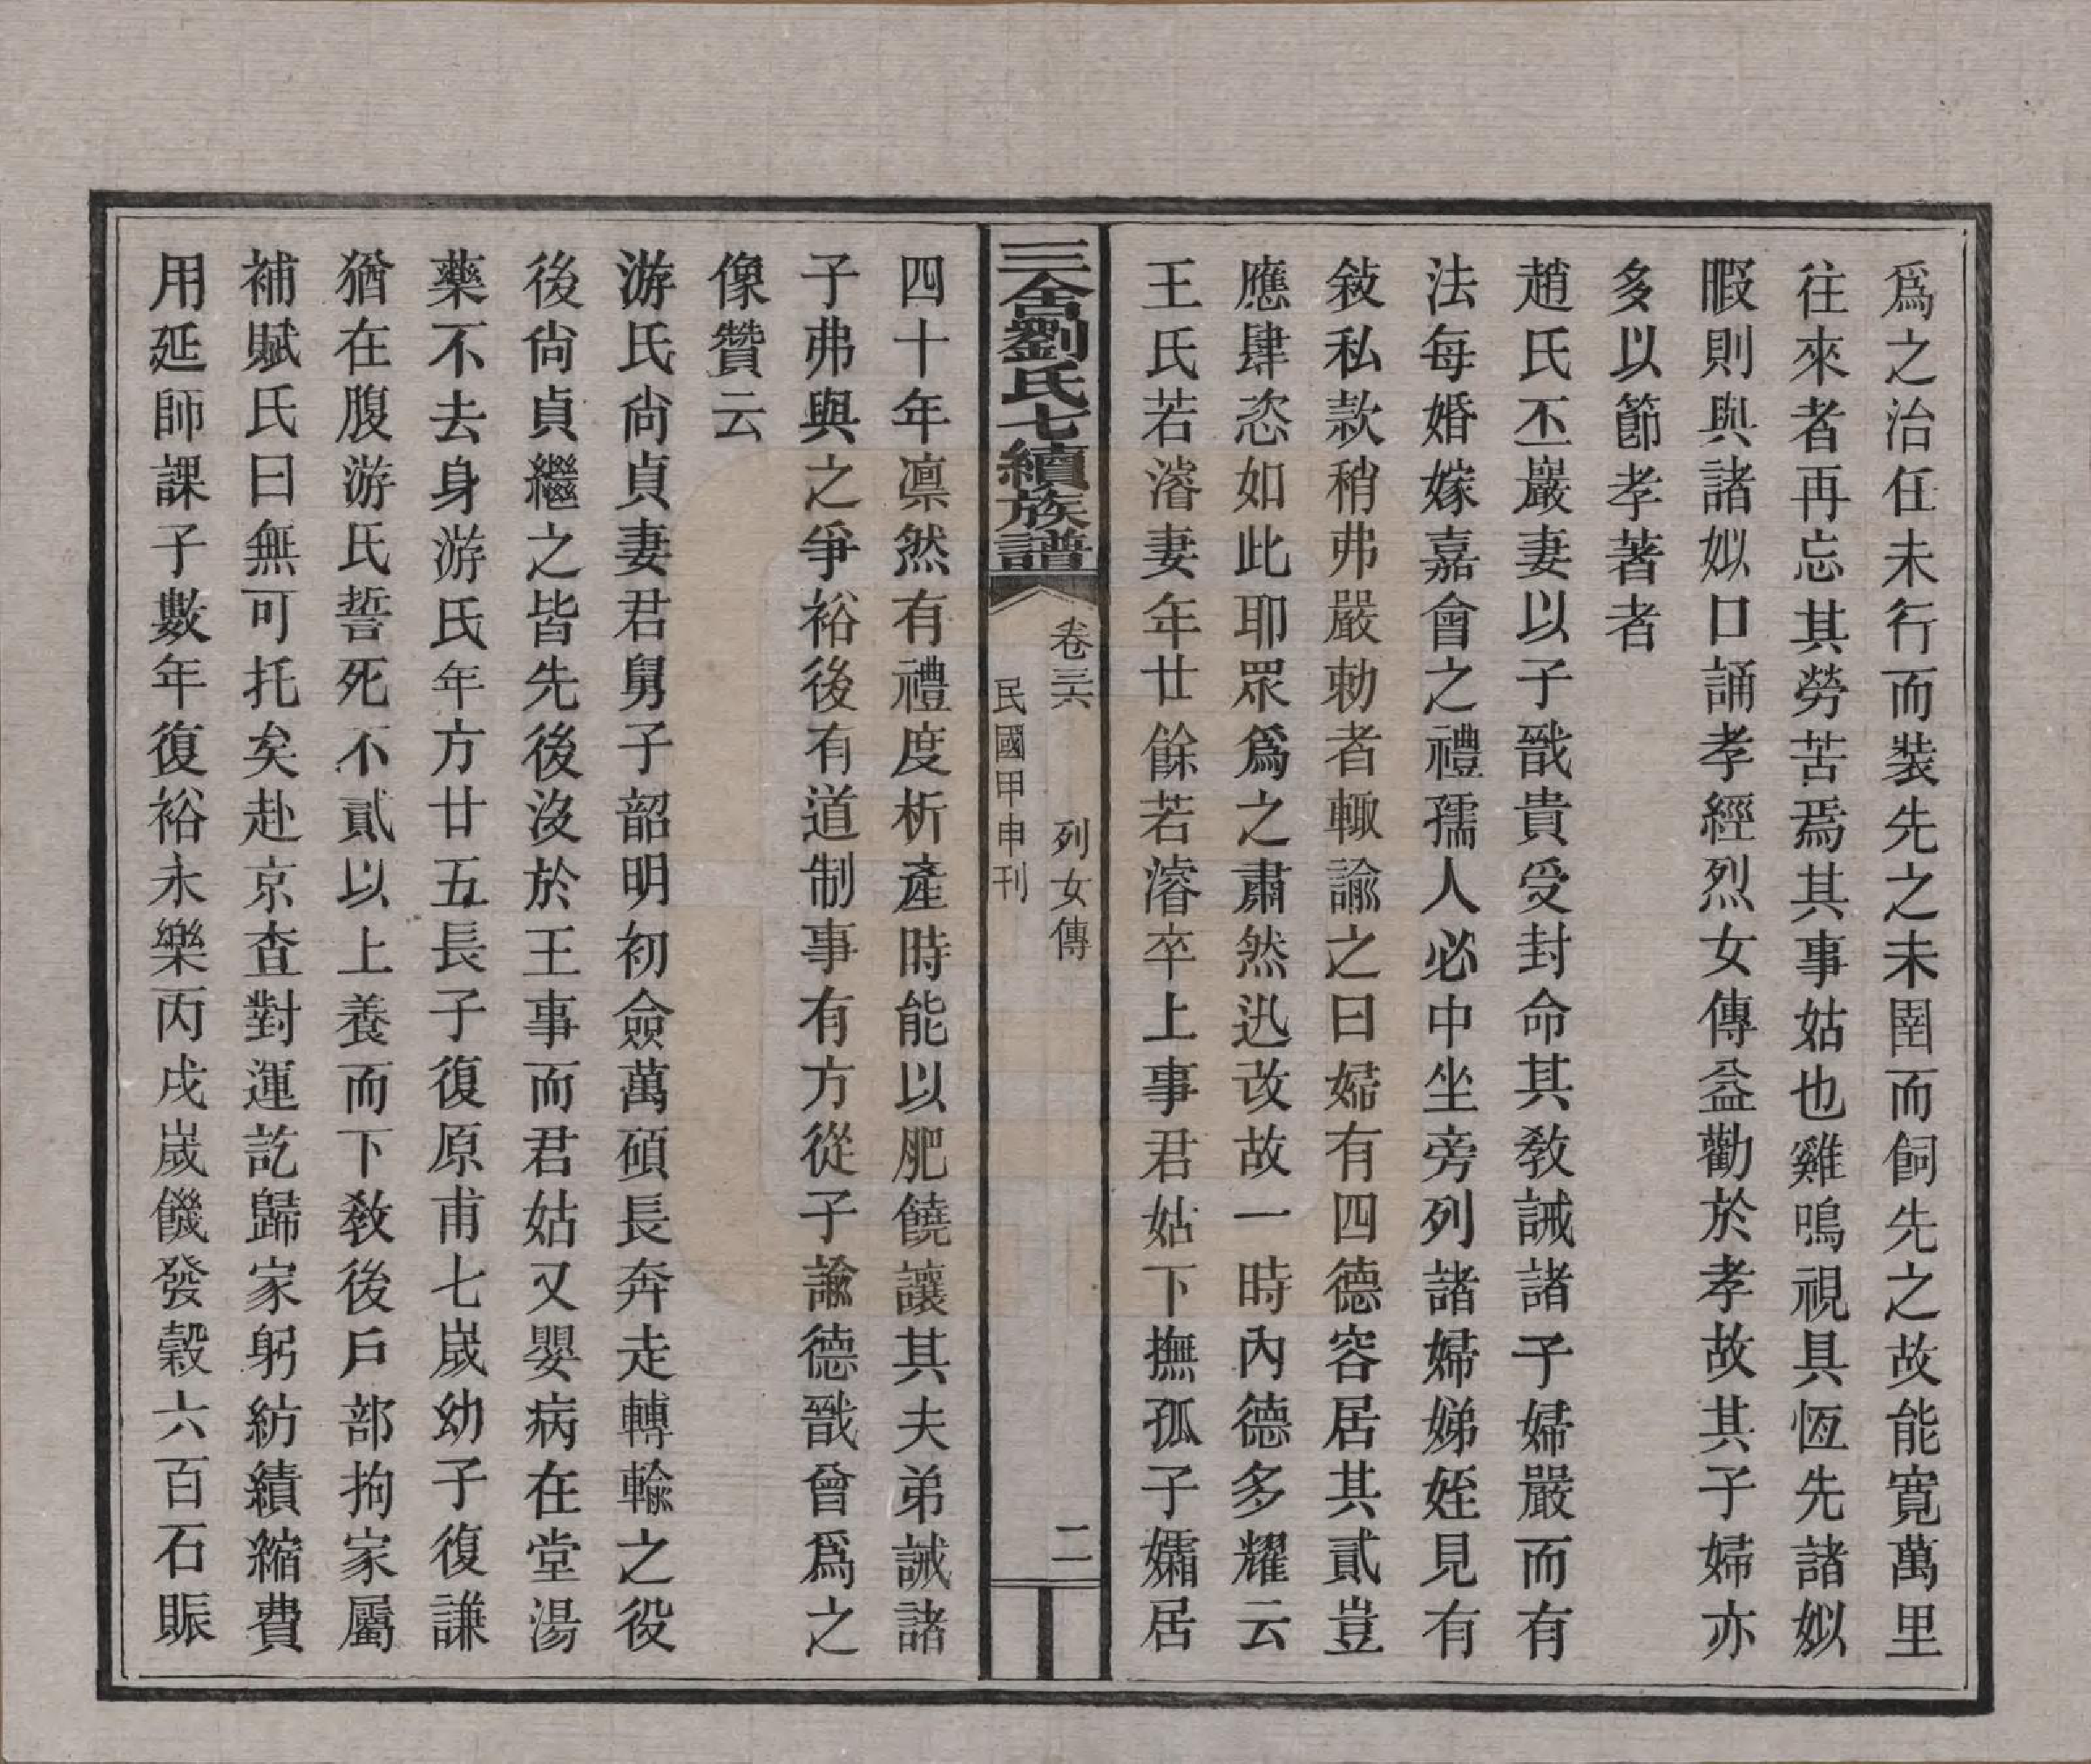 爲之治任未行而裝先之未圉而飼先之故能寛萬里
往來者再忘其勞苦焉其事姑也雞鳴視具恆先諸姒
暇則與諸姒口誦孝經烈女傳益勸於孝故其子婦亦
多以節孝著者
趙氏丕巖妻以子戩貴受封命其敎誡諸子婦嚴而有
法每婚嫁嘉會之禮孺人必中坐旁列諸婦娣姪見有
敍私款稍弗嚴勅者輙諭之曰婦有四德容居其貳豈
應肆恣如此耶眾爲之肅然迅改故一時內德多耀云
王氏若濬妻年廿餘若濬卒上事君姑下撫孤子孀居
三舍劉氏七續族譜
卷三六 列女傳 二
民國甲申刊
四十年凛然有禮度析產時能以肥饒讓其夫弟誡諸
子弗與之爭裕後有道制事有方從子諭德戩曾爲之
像贊云
游氏尙貞妻君舅子韶明初僉萬碩長奔走轉輸之役
後尙貞繼之皆先後沒於王事而君姑又嬰病在堂湯
藥不去身游氏年方廿五長子復原甫七嵗幼子復謙
猶在腹游氏誓死不貳以上養而下敎後戶部拘家屬
補賦氏曰無可托矣赴京查對運訖歸家躬紡績縮費
用延師課子數年復裕永樂丙戌嵗饑發穀六百石賑